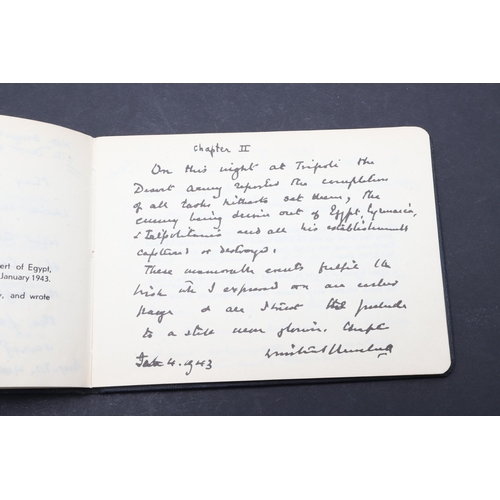 Chapter II
On this night at Tripoli the
Desert Army reported the completion
of all tasks hitherto set them; the
enemy being driven out of Egypt, Cyrenaica,
& Tripolitania and all his establishments
captured or destroyed.
These memorable events fulfil the
wish wh I expressed on an earlier
page & are I trust the prelude
to a still more glorious Chapter
Feb 4. 1943
Winston S Churchill
ert of Egypt,
January 1943.
, and wrote